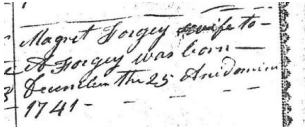 Magret Forgey wife to -
A Forgey was born -
December the 25 Anidomini
1741 -